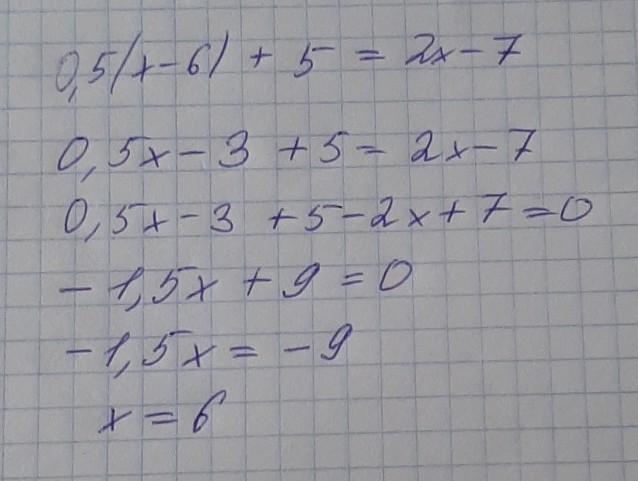 0,5(x-6) + 5 = 2x-7
0,5x-3 +5= 2x-7
0,5x-3 +5-2x+7=0
-1,5x+9=0
-1,5x=-9
x=6